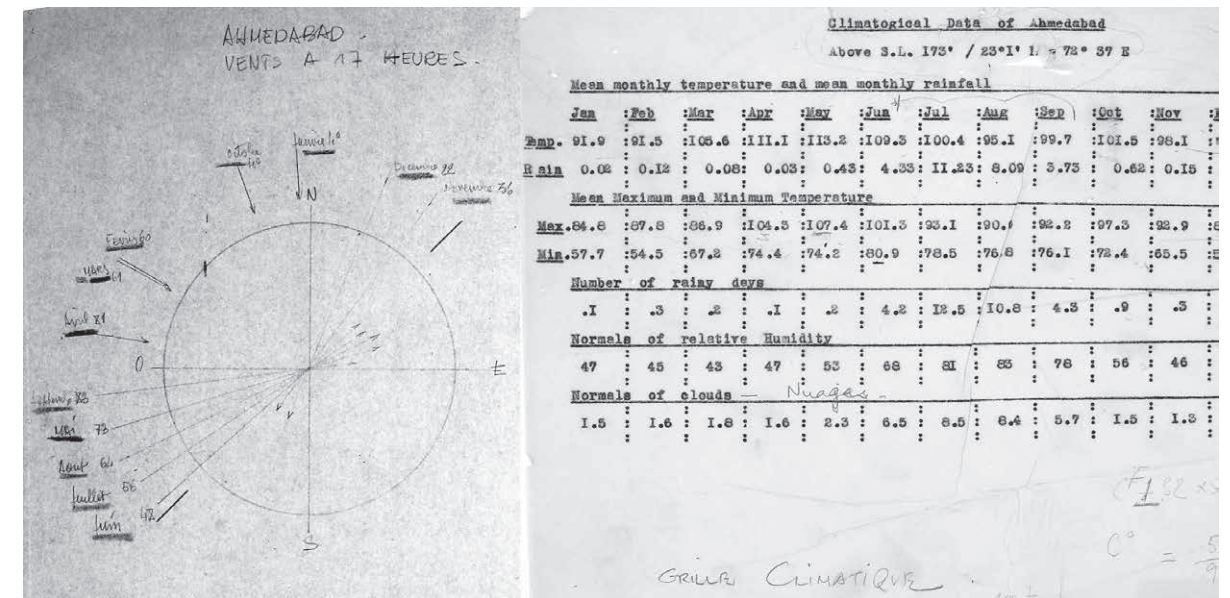 AHMEDABAD.
VENTS A 17 HEURES.
Octobre
Janvier
Décembre 22
Novembre 36
N
Fevrier 60
MARS 61
Avril 81
O
E
83
MAI 73
Aout 64
Juillet 56
Juin 48
S
Climatogical Data of Ahmedabad
Above S.L. 173' / 23°I' 72° 37 E
Mean monthly temperature and mean monthly rainfall
Jan :Feb :Mar :Apr :May :Jun :Jul :Aug :Sep :Oct :Nov :
Temp. 91.9 :91.5 :I05.6 :III.I :II3.2 :I09.3 :I00.4 :95.I :99.7 :I01.5 :98.I :
Rain 0.02 : 0.12 : 0.08: 0.03: 0.43: 4.33: II.23: 8.09 : 3.73 : 0.62: 0.I5 :
Mean Maximum and Minimum Temperature
Max.84.8 :87.8 :86.9 :I04.3 :I07.4 :I0I.3 :93.I :90. :92.2 :97.3 :92.9 :
Min.57.7 :54.5 :67.2 :74.4 :74.2 :80.9 :78.5 :76.8 :76.I :72.4 :65.5 :
Number of rainy days
.I : .3 : .2 : .I : .2 : 4.2 : I2.5 :I0.8 : 4.3 : .9 : .3 :
Normals of relative Humidity
47 : 45 : 43 : 47 : 53 : 68 : 8I : 83 : 78 : 56 : 46 :
Normals of clouds — Nuages -
I.5 : I.6 : I.8 : I.6 : 2.3 : 6.5 : 8.5 : 8.4 : 5.7 : I.5 : I.3 :
32
C° =
GRILLE CLIMATIQUE.